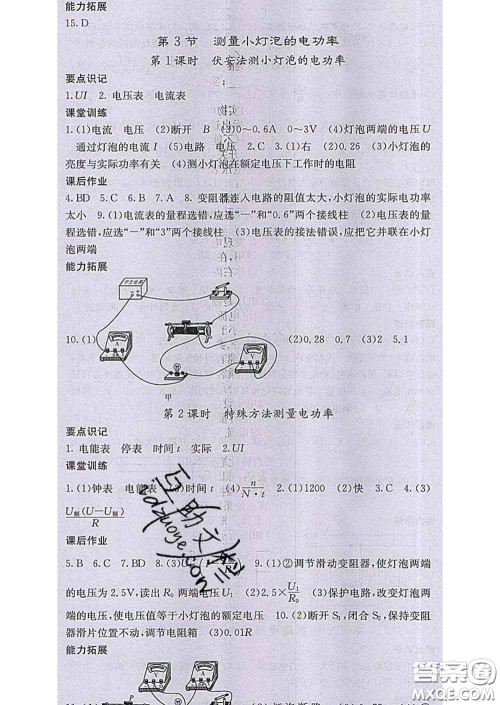 能力拓展
15. D
第3节 测量小灯泡的电功率
第1课时 伏安法测小灯泡的电功率
要点识记
1. UI 2. 电压表 电流表
课堂训练
1. (1)电流 电压 (2)断开 B (3)0～0.6A 0～3V (4)灯泡两端的电压U
通过灯泡的电流I (5)电路 电压 2. C 3. (1)右 (2)0.26 (3)小灯泡的
亮度与实际功率有关 (4)测小灯泡在额定电压下工作时的电阻
课后作业
4. BD 5. C 6. B 7. A 8. 变阻器连入电路的阻值太大,小灯泡的实际电功率
太小 9. (1)电流表的量程选错,应选“－”和“0.6”两个接线柱 (2)电压表的量
程选错,应选“－”和“3”两个接线柱 (3)电压表的接法错误,应把它并联在小灯
泡两端
能力拓展
10. (1) (2)0.28 0.7 (3)2 5.1
甲
第2课时 特殊方法测量电功率
要点识记
1. 电能表 停表 时间t 实际 2. UI
课堂训练
1. (1)钟表 电能表 (3)时间t (4) n/(N·t) 2. (1)1200 (2)快 3. C 4. (3)
U额(U－U额)/R
课后作业
5. B 6. C 7. BD 8. (3) 9. (1)②调节滑动变阻器,使灯泡两端
的电压为2.5V,读出R₀两端电压U₁ (2)2.5×U₁/R₀ (3)保护电路,改变灯泡两端
的电压,使电压值等于小灯泡的额定电压 10. (2)断开S₁,闭合S₂,保持变阻
器滑片位置不动,调节电阻箱 (3)0.01R
能力拓展
互助文库
答案圈